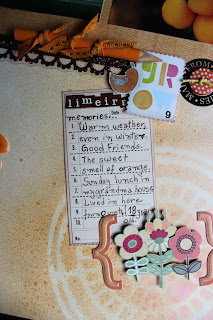 FROM
URO
9
limeira
Date
memories...
1. Warm weather,
2. even in winter
3. Good Friends...
4. The sweet
5. smell of orange.
6. Sunday lunch in
7. my grandma house
8. Lived in here
9. from 0 until 18 years
10. old.
No.